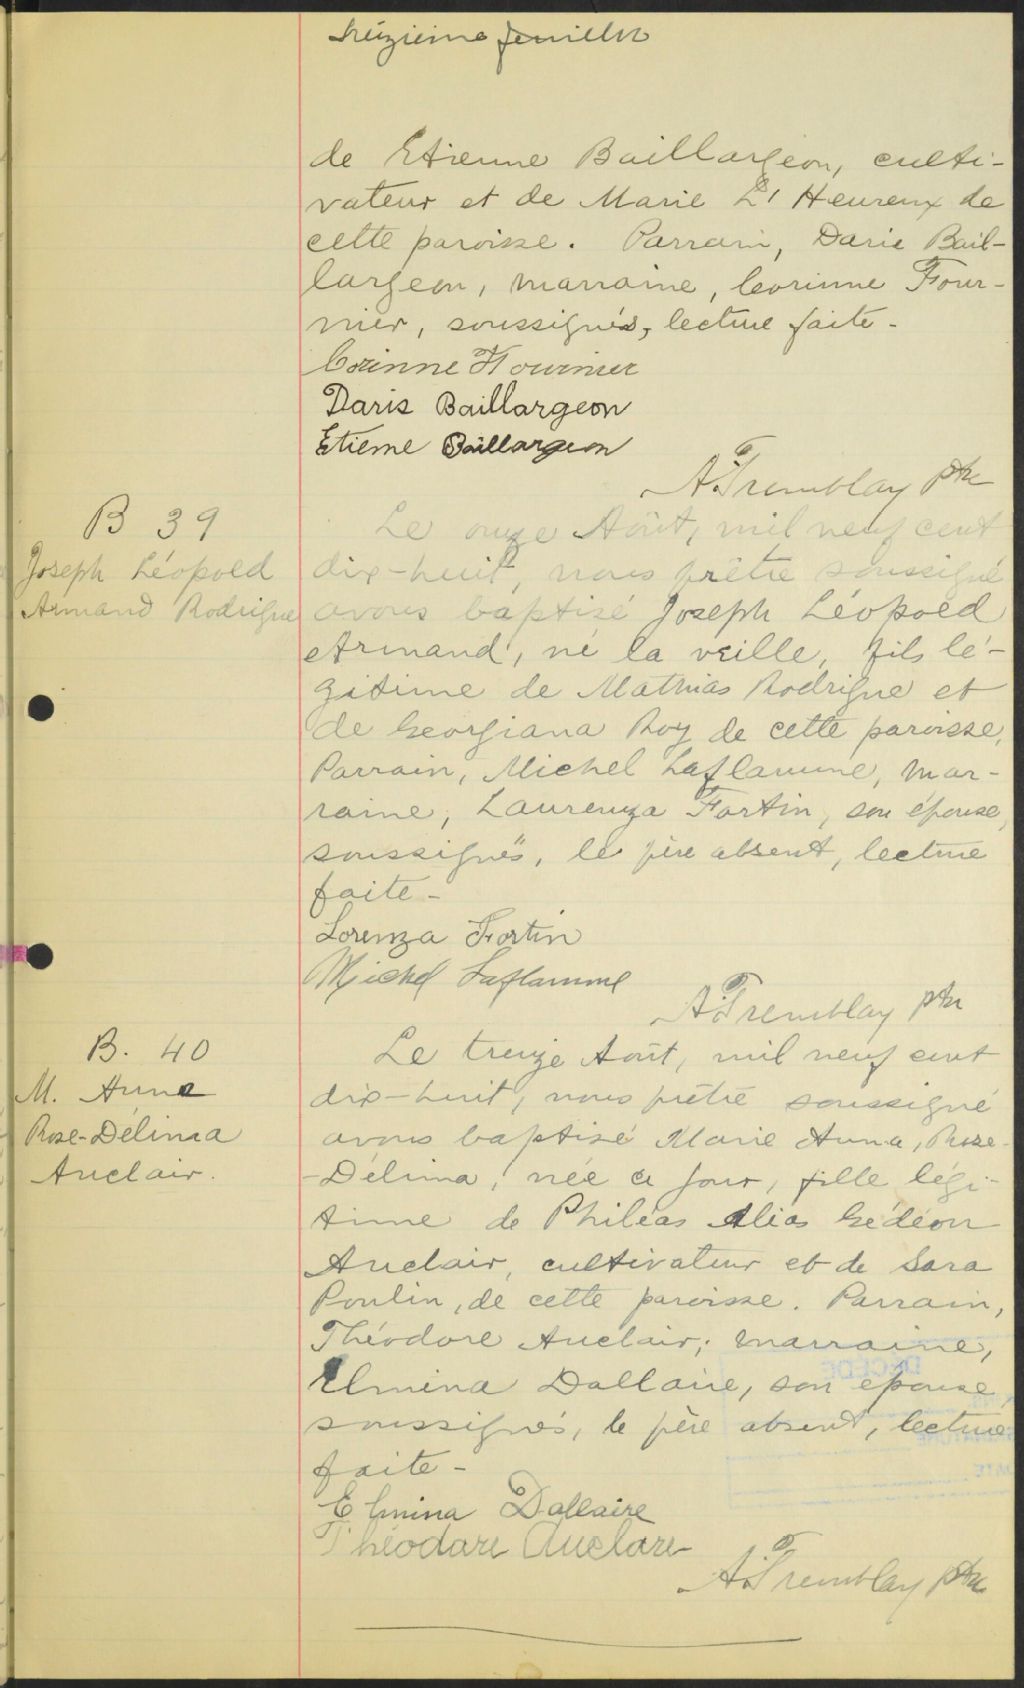 treizième feuillet
de Etienne Baillargeon, culti-
vateur et de Marie L'Heureux de
cette paroisse. Parrain, Darie Bail-
largeon, marraine, Corinne Four-
nier, soussignés, lecture faite -
Corinne Fournier
Daris Baillargeon
Etienne Baillargeon
A. Tremblay ptre
B 39
Joseph Léopold
Armand Rodrigue
Le onze Août, mil neuf cent
dix-huit, nous prêtre soussigné
avons baptisé Joseph Léopold
Armand, né la veille, fils lé-
gitime de Mathias Rodrigue et
de Georgiana Roy de cette paroisse,
Parrain, Michel Laflamme, mar-
raine, Laurenza Fortin, son épouse,
soussignés, le père absent, lecture
faite -
Lorenza Fortin
Michel Laflamme
A. Tremblay ptre
B. 40
M. Anna
Rose-Délima
Auclair.
Le treize Août, mil neuf cent
dix-huit, nous prêtre soussigné
avons baptisé Marie Anna, Rose-
-Délima, née ce jour, fille légi-
time de Philéas Alias Gédéon
Auclair, cultivateur et de Sara
Poulin, de cette paroisse. Parrain,
Théodore Auclair; marraine,
Elmina Dallaire, son épouse,
soussignés, le père absent, lecture
faite -
Elmina Dallaire
Théodare Auclare
A. Tremblay ptre